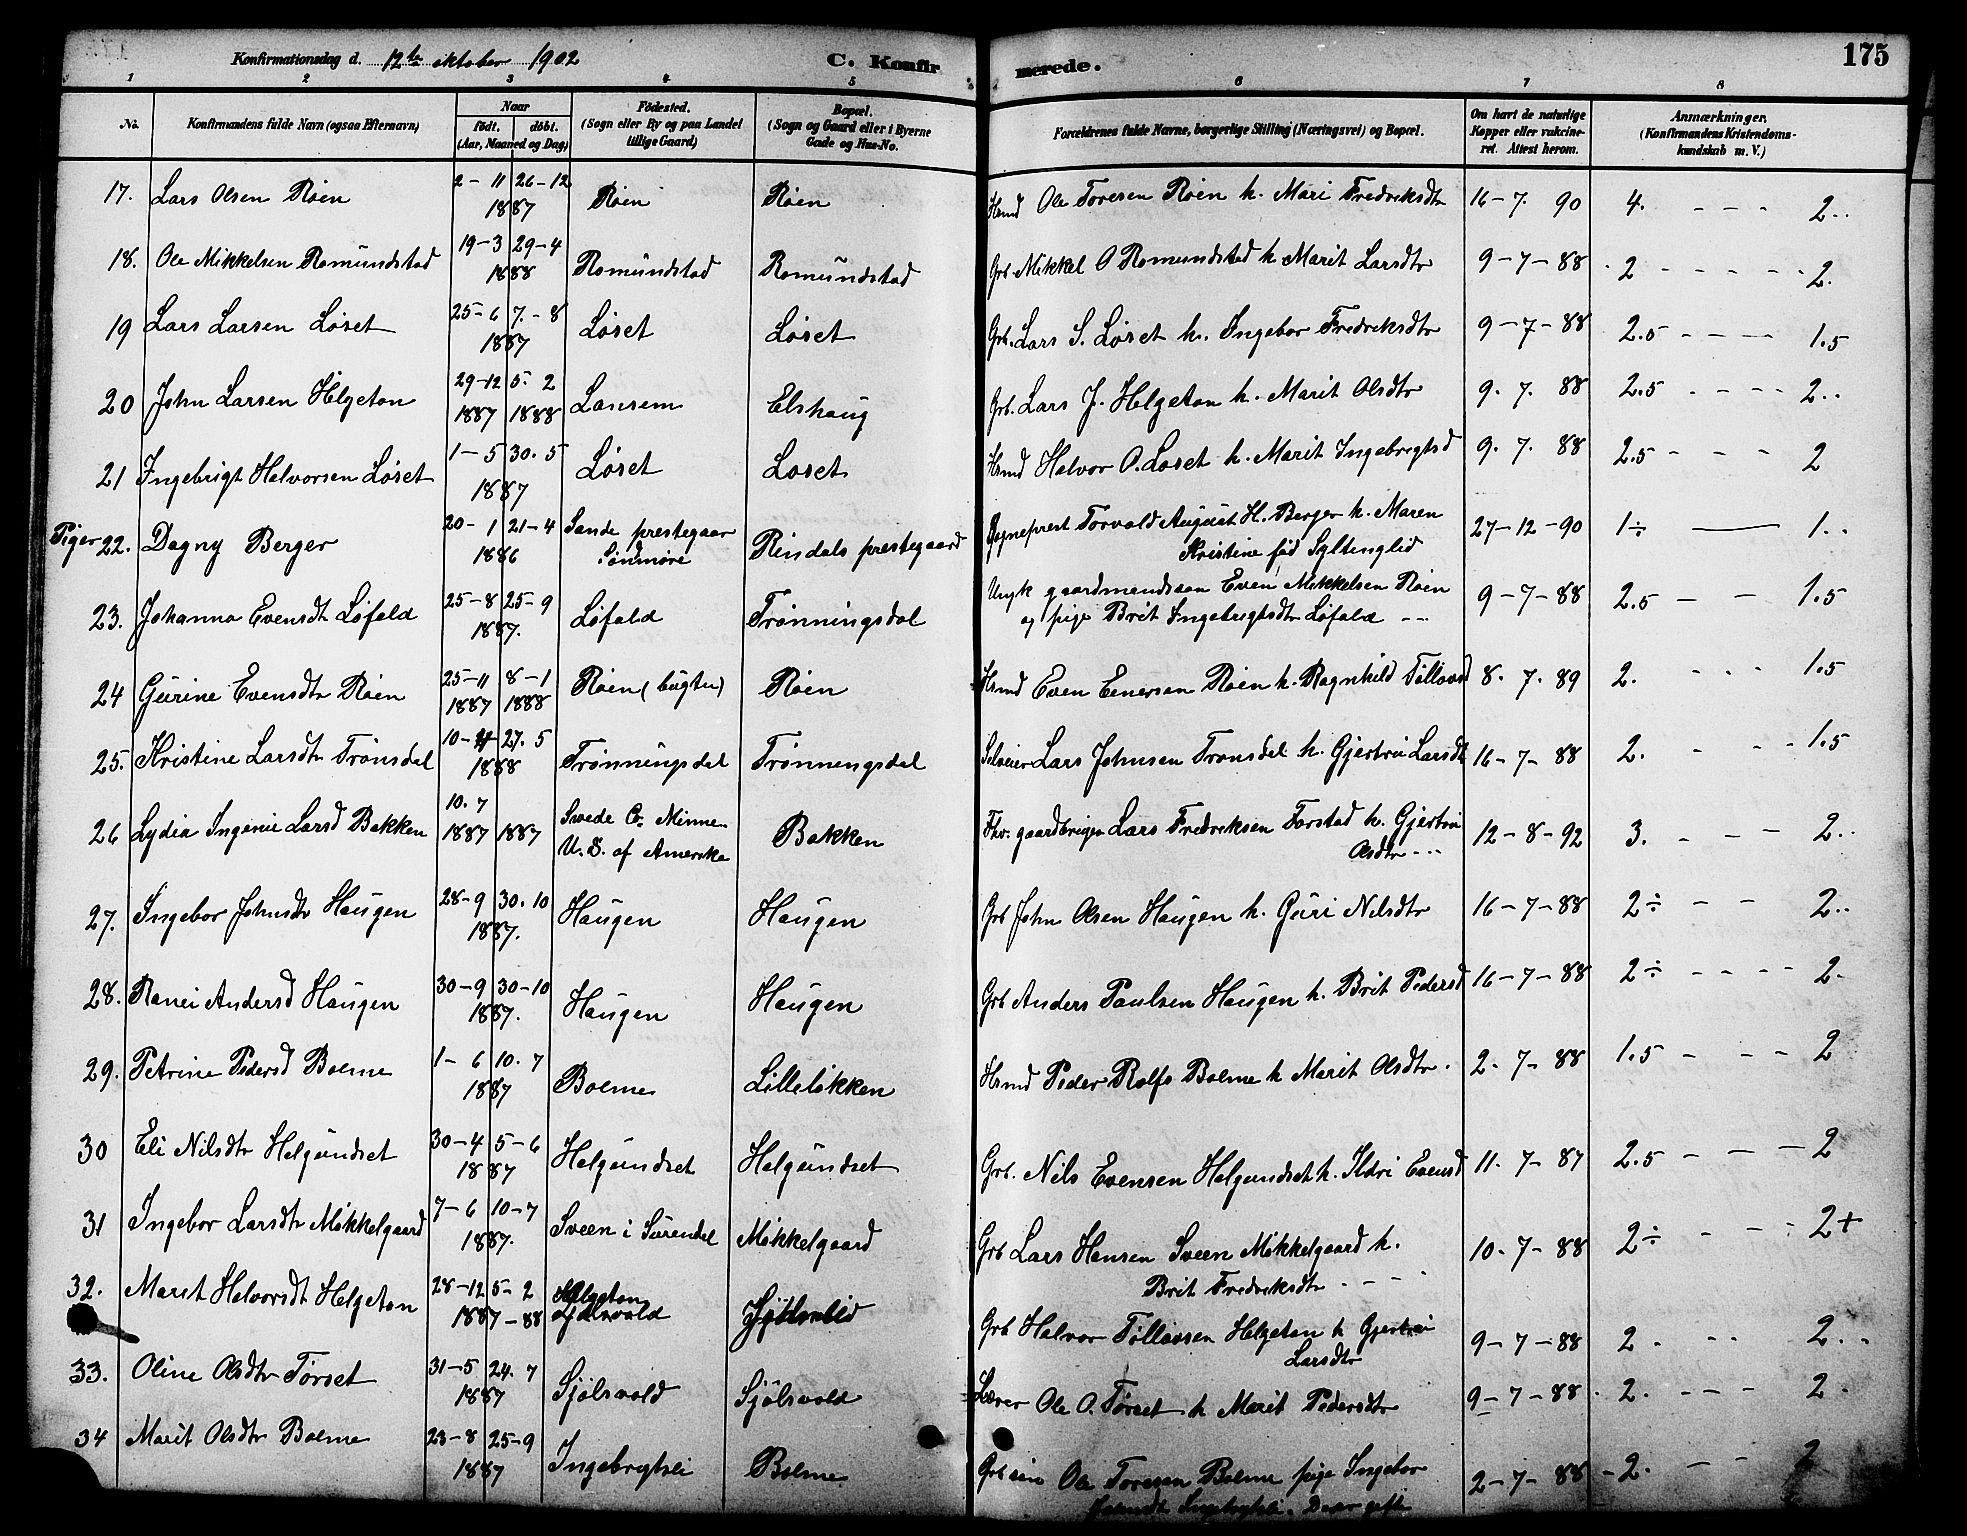 Konfirmationsdag d. 12te oktober 1902 C. Konfirmerede. 175
1 2 3 4 5 6 7 8
No. Konfirmandens fulde Navn (ogsaa Efternavn) Naar født. døbt. (Aar, Maaned og Dag) Fødested. (Sogn eller By og paa Landet tillige Gaard) Bopæl. (Sogn og Gaard eller i Byerne Gade og Hus-No. Forældrenes fulde Navne, borgerlige Stilling (Næringsvei) og Bopæl. Om havt de naturlige Kopper eller vakcineret. Attest herom. Anmærkninger. (Konfirmandens Kristendomskundskab m. V.)
17. Lars Olsen Røen 2-11 26-12 1887 Røen Røen Hsmd Ole Toresen Røen h. Mari Fredriksdtr 16-7. 90 4. - - - 2..
18. Ole Mikkelsen Romundstad 19-3 29-4 1888 Romundstad Romundstad Grb. Mikkel O Romundstad h. Marit Larsdtr 9-7-88 2 - - - - - 2.
19 Lars Larsen Løset 25-6 7.-8 1887 Løset Løset Grb. Lars S. Løset h. Ingebor Fredriksdtr 9-7-88 2.5 - - - - 1.5
20 John Larsen Helgeton 29-12 5. 2 1887 1888 Lansem Elshaug Grb. Lars J. Helgeton h. Marit Olsdtr 9. 7. 88 2.5 - - - - 2..
21 Ingebrigt Halvorsen Løset 1-5 30. 5 1887 Løset Løset Hsmd Halvor O. Løset h. Marit Ingebrigtsd 9. 7. 88 2.5 - - - 2
Piger 22. Dagny Berger 20-1 21-4 1886 Sande prestegaar Søndmøre Rindals prestegaard Sogneprest Torvald August H. Berger h. Maren
Kristine fød Syltenglid 27-12-90 1÷ — 1..
23. Johanna Evensdt Løfald 25-8 25-9 1887. Løfald Trønningsdal Ungk gaardmandssøn Even Mikkelsen Røen
og pige Brit Ingebrigtsdtr Løfald - - 9-7-88 2.5 - - 1.5
24 Gurine Evensdtr Røen 25-11 8-1 1887 1888 Røen (bugten) Røen Hsmd Even Enersen Røen h. Ragnhild Tølløvsd 8. 7. 89 2. - - 1.5
25. Kristine Larsdtr Trønsdal 10-4 27. 5 1888 Trønningsdal Trønningsdal Selveier Lars Johnsen Trønsdal h. Gjertru Larsdt 16-7-88 2. - - - 1.5
26 Lydia Ingerie Larsd Bakken 10. 7 1887 1887 Swede Co. Minne. U. S. af Amerika Bakken Fhv. gaardbruger Lars Fredriksen Forstad h. Gjertru
Olsdtr - - 12-8-92 3. - - - 2..
27. Ingebor Johnsdtr Haugen 28-9 30. 10 1887. Haugen Haugen Grb John Olsen Haugen h. Guri Nilsdtr 16-7-88 2÷ - - 2..
28. Ranei Andersd Haugen 30-9 30-10 1887. Haugen Haugen Grb Anders Paulsen Haugen h. Brit Pedersd 16-7-88 2÷ - - - - 2.
29. Petrine Pedersd Bolme 1-6 10. 7 1887 Bolme Lilleløkken Hsmd Peder Rolfs Bolme h Marit Olsdtr. 2. 7-88 1.5 - - - 2
30 Eli Nilsdtr Helgundset 30-4 5-6 1887 Helgundset Helgundset Grb. Nils Evensen Helgundset h. Ildri Evensd 11. 7-87 2.5 - - - - 2
31 Ingebor Larsdtr Mikkelgaard 7-6 10-7 1887. Sveen i Surendal Mikkelgaard Grb Lars Hansen Sveen Mikkelgaard h.
Brit Fredriksdtr - - - - 10-7-88 2÷ - - - 2+
32. Marit Halvorsdt Helgeton 28-12 5-2 1887-88 Helgeton Grb Halvor Tølløvsen Helgeton h Gjertru
Larsdtr 9-7-88 2. - - 2..
33. Oline Olsdtr Tørset 31-5 24. 7 1887 Sjølsvold Sjølsvold Lærer Ole O. Tørset h Marit Pedersdtr 9-7-88 2. - - - 2.
34 Marit Olsdtr Bolme 23-8 25-9 1887 Ingebrgtsli Bolme Grb søn Ole Toresen Bolme pige Ingebor 2-7-88 2. - - 2